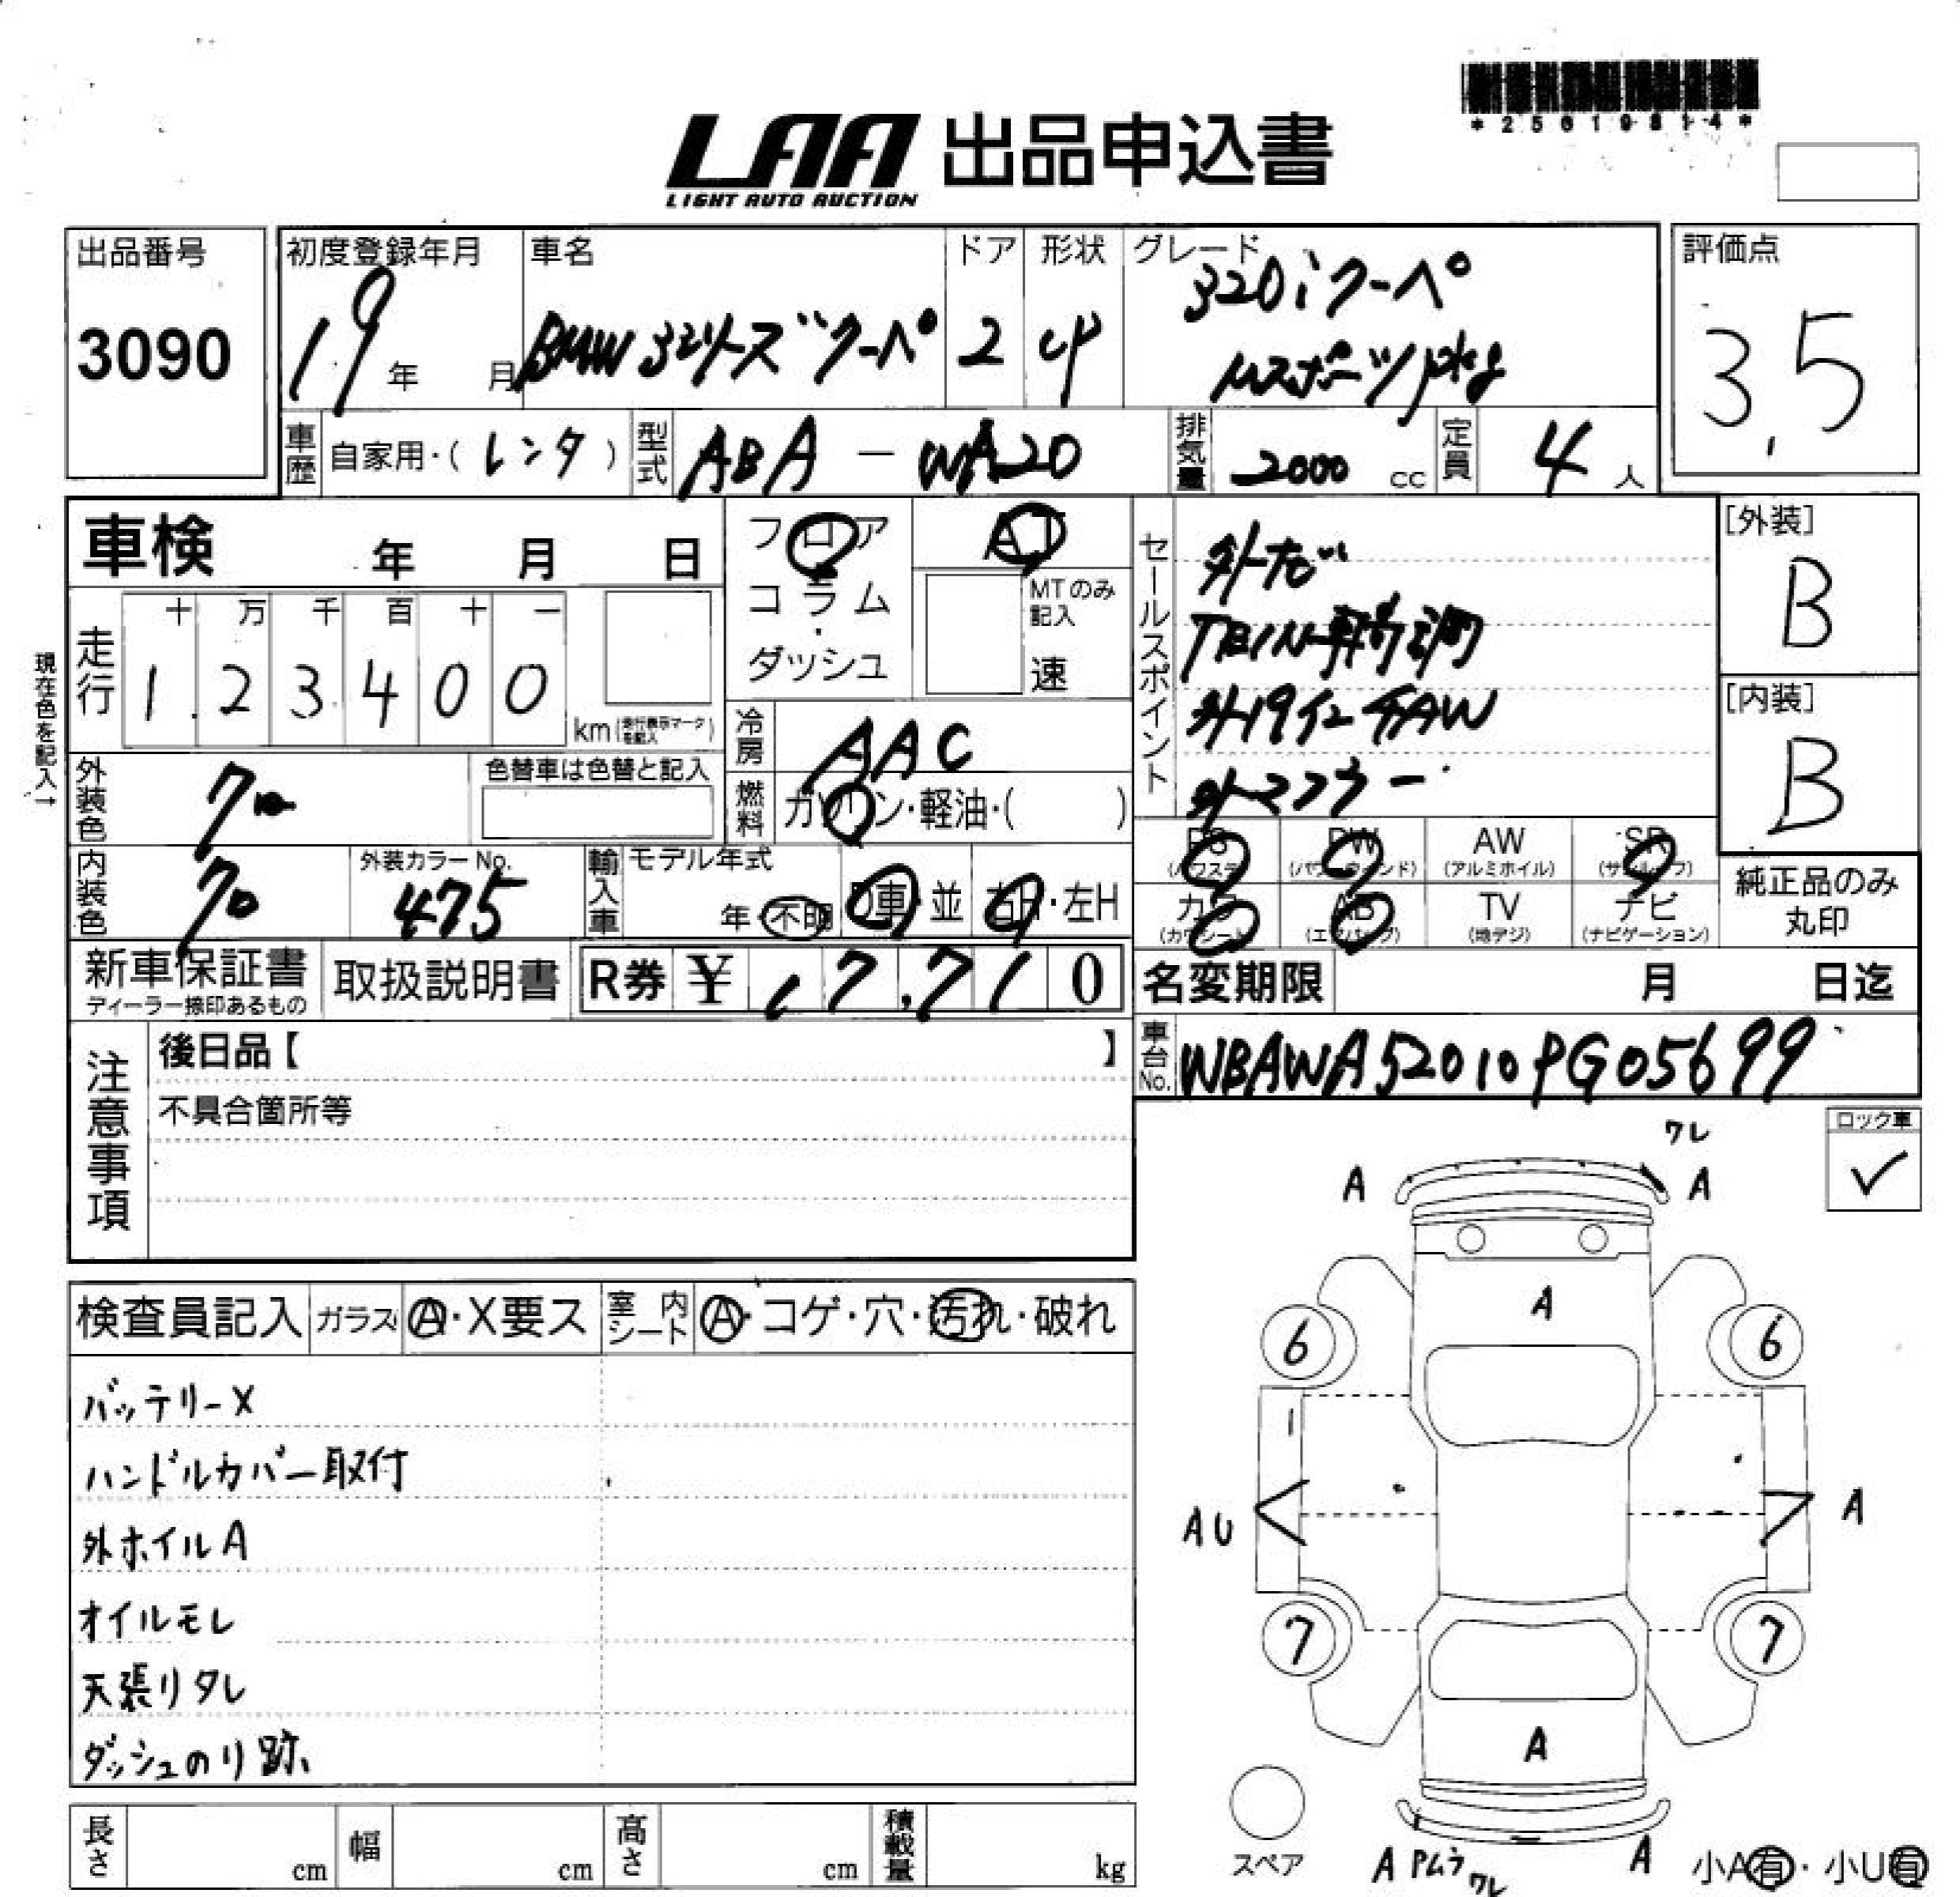 *25019814*
LAA 出品申込書
LIGHT AUTO AUCTION
出品番号
3090
初度登録年月
19年 月
車名
BMW 3シリーズ クーペ
ドア
2
形状
クP
グレード
320i クーペ
Mスポーツ pkg
評価点
3.5
車歴 自家用・(レンタ)
型式 ABA-WA20
排気量 2000 cc
定員 4人
車検 年 月 日
走行
十 万 千 百 十 一
1 2 3 4 0 0
km(走行表示マークを記入)
現在色を記入→
フロア・コラム・ダッシュ
AT
MTのみ記入
速
冷房 AAC
燃料 ガソリン・軽油・( )
セールスポイント
外ナビ
TEIN車高調
外19インチAW
外マフラー
[外装]
B
[内装]
B
外装色 クロ
色替車は色替と記入
内装色 クロ
外装カラーNo.
475
輸入車 モデル年式
年・不明
D車・並
右H・左H
PS
(パワステ)
PW
(パワーウィンド)
AW
(アルミホイル)
SR
(サンルーフ)
カワ
(カワシート)
AB
(エアバッグ)
TV
(地デジ)
ナビ
(ナビゲーション)
純正品のみ
丸印
新車保証書
ディーラー捺印あるもの
取扱説明書
R券 ¥17,710
名変期限 月 日迄
車台No. WBAWA52010PG05699
注意事項
後日品【 】
不具合箇所等
ロック車
✓
検査員記入 ガラス Ⓐ・X要ス 室内シート Ⓐ・コゲ・穴・汚れ・破れ
バッテリーX
ハンドルカバー取付
外ホイルA
オイルモレ
天張りタレ
ダッシュのり跡
ワレ
A
A
A
6
6
AU
A
7
7
A
スペア
A PムラワレA
小A有・小U有
長さ cm
幅 cm
高さ cm
積載量 kg